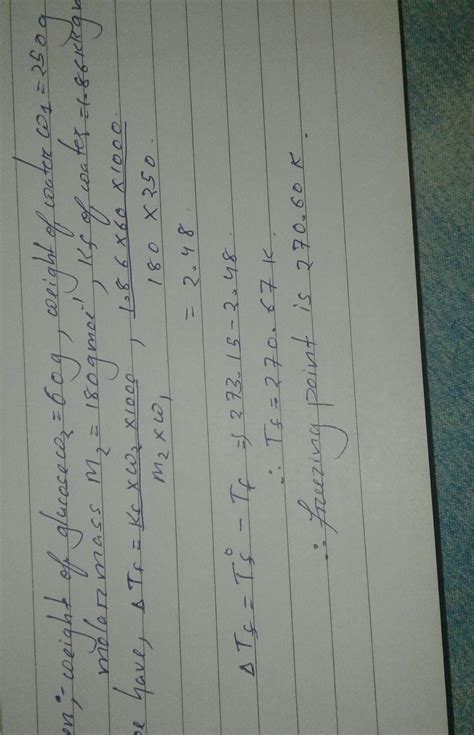 en:- weight of glucose w₂ = 60g, weight of water w₁ = 250g
molar mass M₂ = 180 g mol⁻¹, Kf of water = 1.86 K kg m
we have, ΔTf = Kf × w₂ × 1000 / M₂ × w₁, 1.86 × 60 × 1000 / 180 × 250
= 2.48.
ΔTf = T°f - Tf = 273.15 - 2.48.
∴ Tf = 270.67 K.
∴ freezing point is 270.60 K.